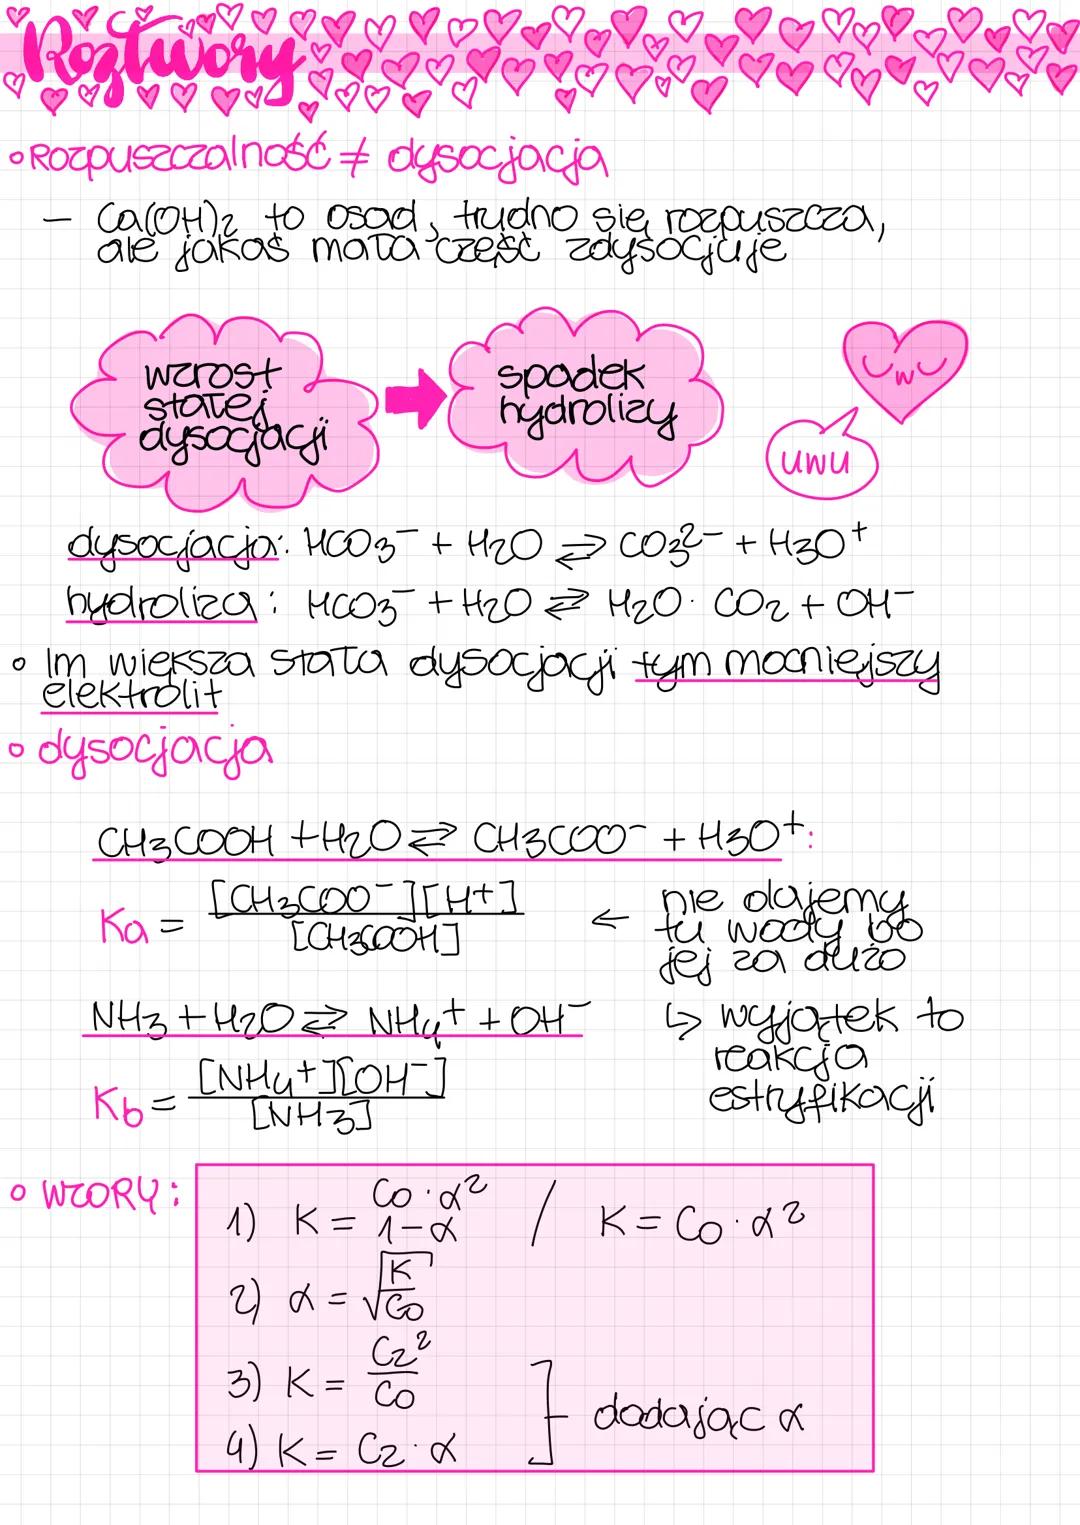 Roztwory
• Rozpuszczalność ≠ dysocjacja
– Ca(OH)₂ to osad, trudno się rozpuszcza,
ale jakaś mała część zdysocjuje
wzrost
stałej
dysocjacji
spadek
hydrolizy
UwU
uwu
dysocjacja: HCO₃⁻ + H₂O ⇌ CO₃²⁻ + H₃O⁺
hydroliza: HCO₃⁻ + H₂O ⇌ H₂O · CO₂ + OH⁻
• Im większa stała dysocjacji tym mocniejszy
elektrolit
• dysocjacja
CH₃COOH + H₂O ⇌ CH₃COO⁻ + H₃O⁺:
Ka = [CH₃COO⁻][H⁺] / [CH₃COOH]
← nie dajemy
tu wody bo
jej za dużo
NH₃ + H₂O ⇌ NH₄⁺ + OH⁻
↳ wyjątek to
reakcja
estryfikacji
Kb = [NH₄⁺][OH⁻] / [NH₃]
• WZORY:
1) K = Co · α² / 1 – α / K = Co · α²
2) α = √K/Co
3) K = Cz² / Co
4) K = Cz · α
] dodając α